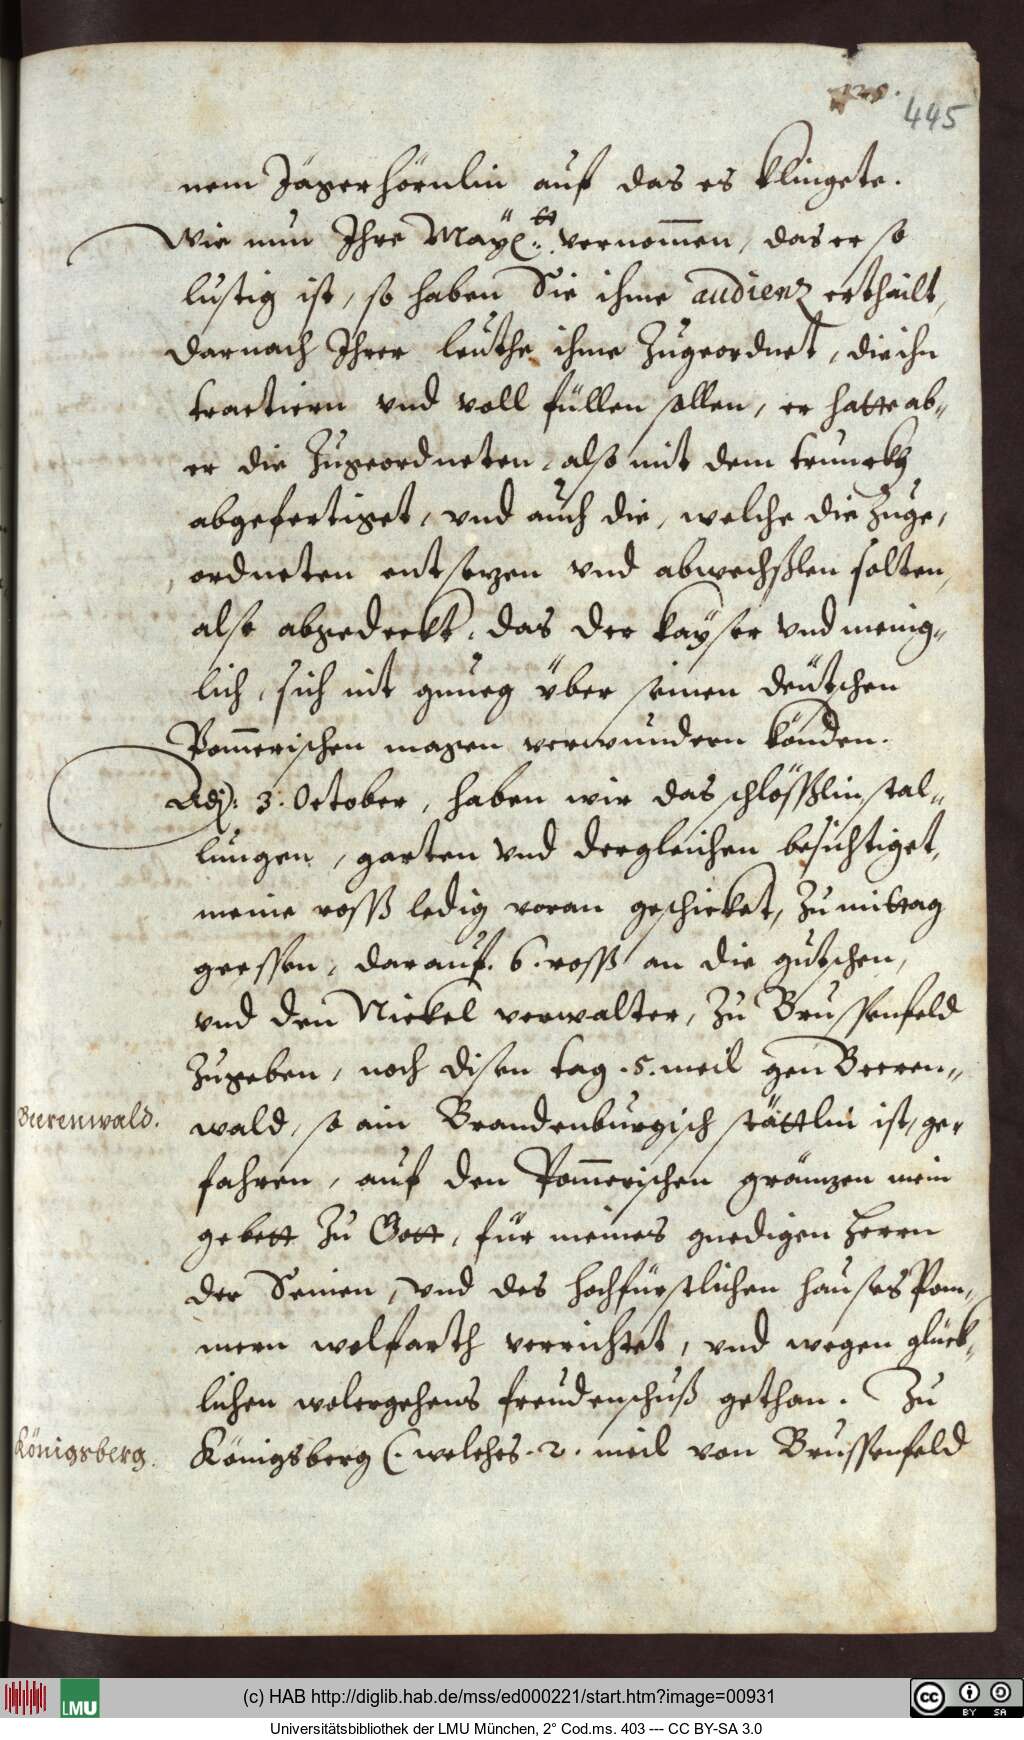 445
nem Jägerhörnlin auf das es klingete.
Wie nun Ihre May: tt vernommen, das er so
lustig ist, so haben Sie ihme audienz erthailt,
darnach Ihrer leuthe ihme Zugeordnet, die ihn
tractiern vnd voll füllen sollen, er hatte ab„
er die Zugeordneten, also mit dem trunckh
abgefertiget, vnd auch die, welche die Zuge„
ordneten entsezen vnd abwechßlen solten,
also abgedeckt, das der Kayser vnd menig„
lich, sich nit gnueg über seinen deütschen
Pom̄erischen magen verwundern könden.
Adj: 3. October, haben wir das schlößlin, stal„
lungen, garten vnd dergleichen besichtiget,
meine roß ledig voran geschicket, Zu mittag
geessen, darauf. 6. roß an die gutschen,
vnd den Nickel verwalter, Zu Brussenfeld
Zugeben, noch disen tag .5. meil gen Beeren„
Beerenwald.
wald, so ain Brandenburgisch stättlin ist, ge„
fahren, auf den Pom̄erischen gränzen mein
gebett Zu Gott, für meines gnedigen Herrn
der Seinen, vnd des hochfürstlichen hauses Pom„
mern wolfarth verrichtet, vnd wegen glück„
lichen wolergehens freudenschuß gethan. Zu
Königsberg.
Königsberg (. welches .2. meil von Brussenfeld
(c) HAB http://diglib.hab.de/mss/ed000221/start.htm?image=00931
LMU
cc BY SA
Universitätsbibliothek der LMU München, 2° Cod.ms. 403 --- CC BY-SA 3.0